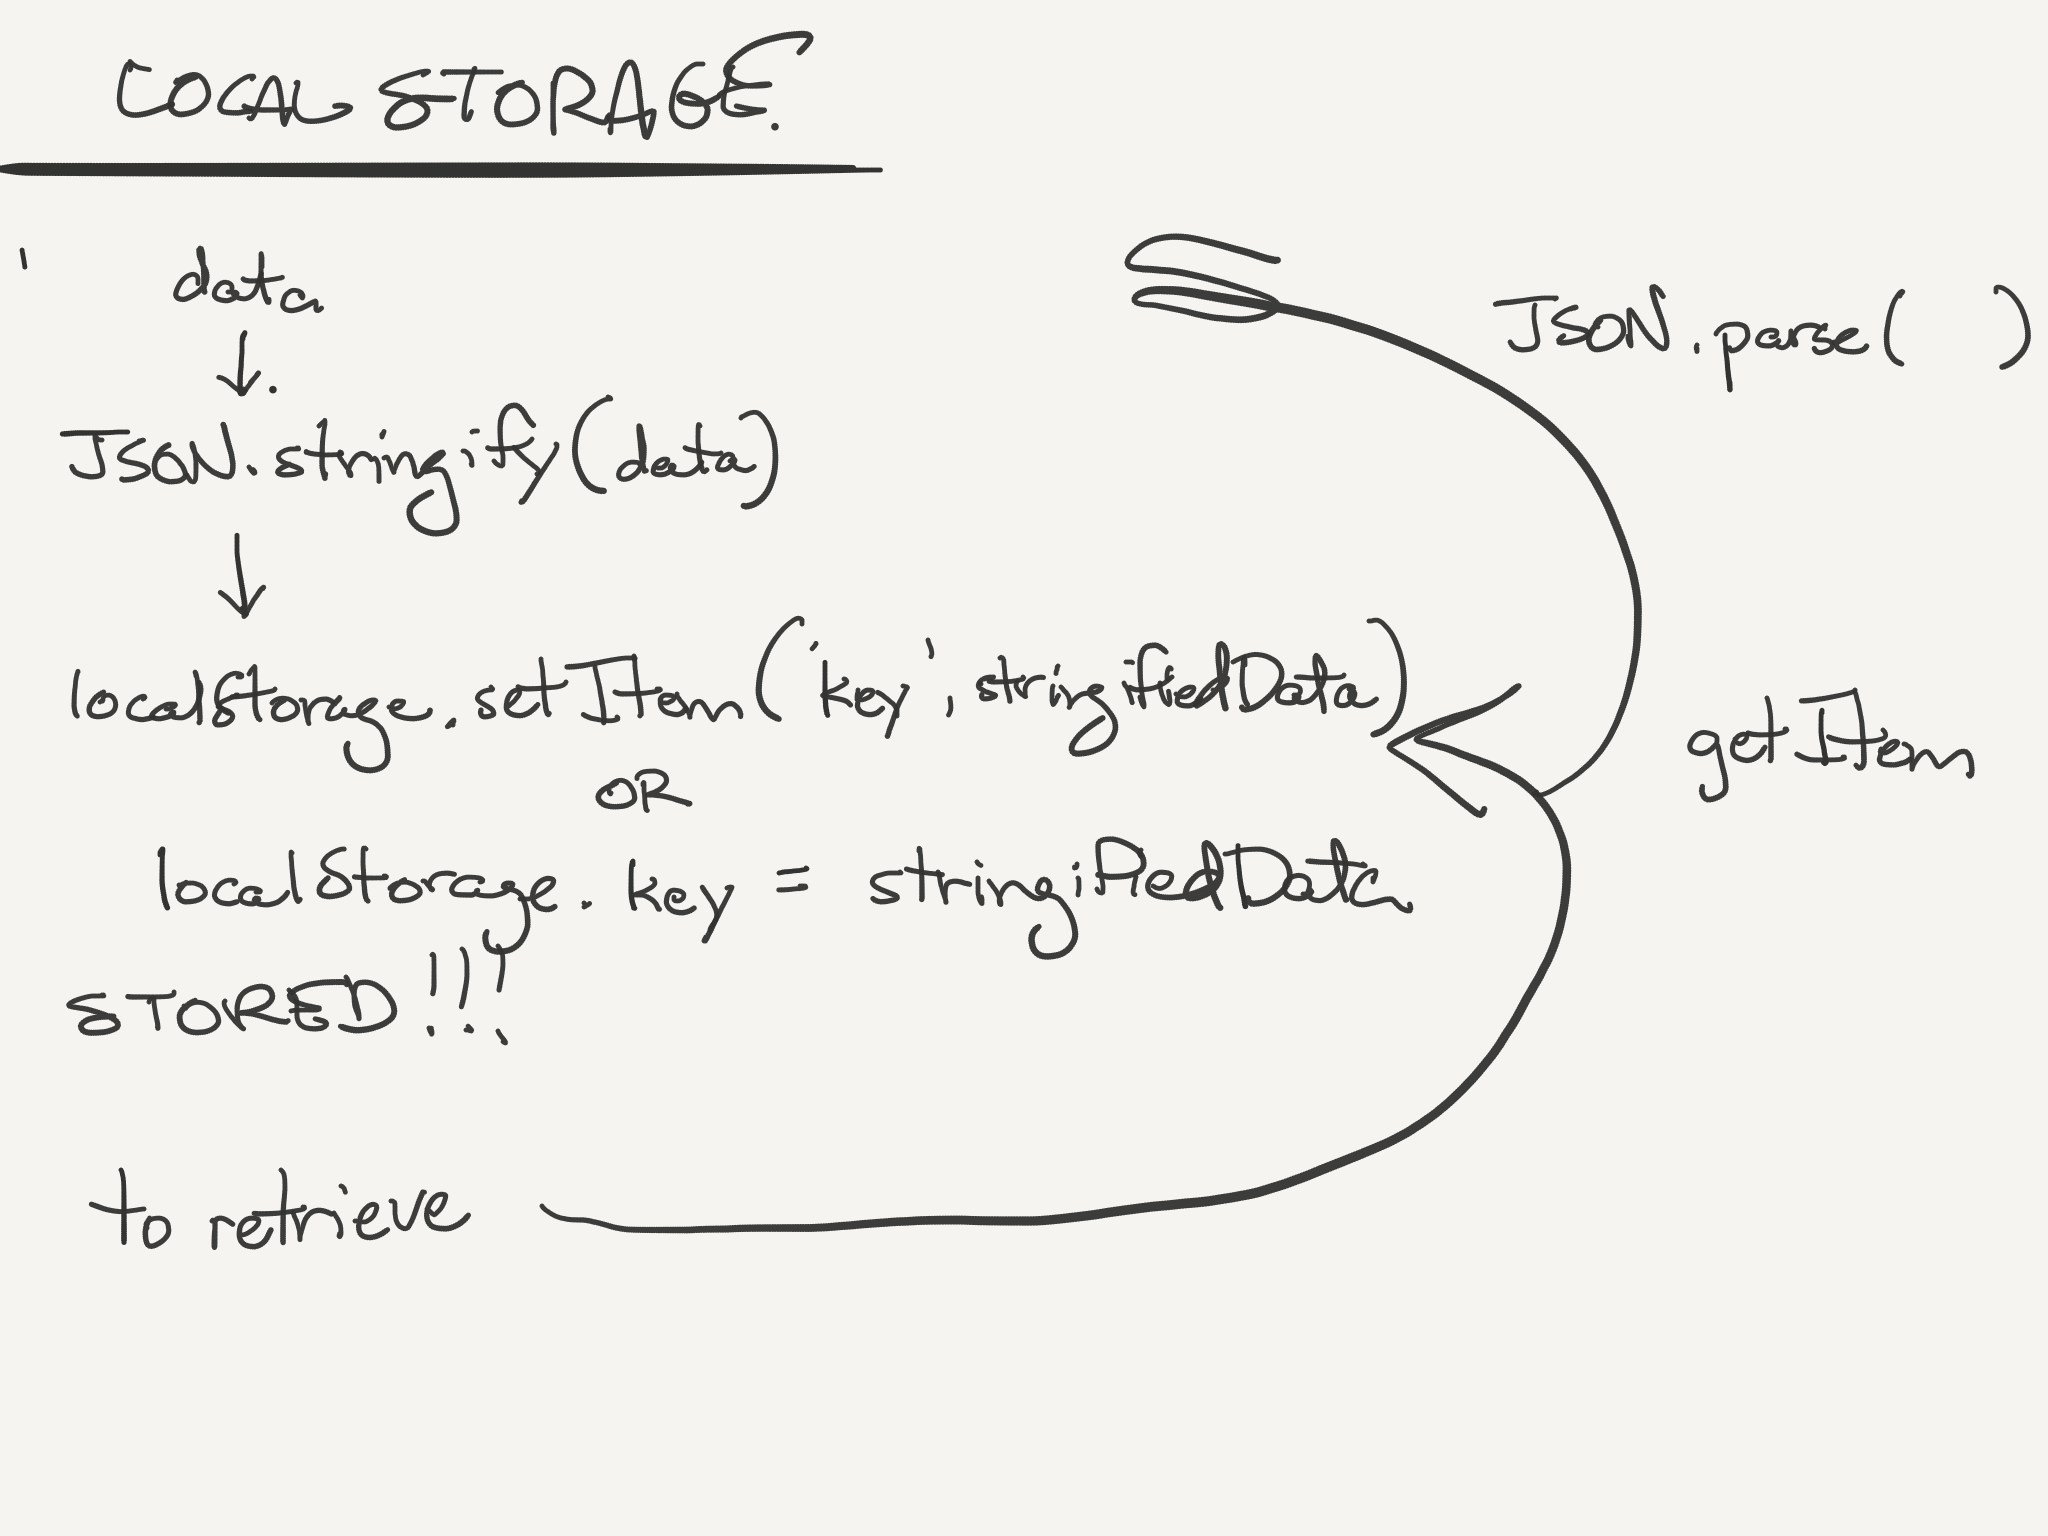 LOCAL STORAGE.
data
JSON.stringify(data)
localStorage.setItem('key', stringifiedData)
OR
localStorage.key = stringifiedData
STORED!!!
to retrieve
getItem
JSON.parse( )